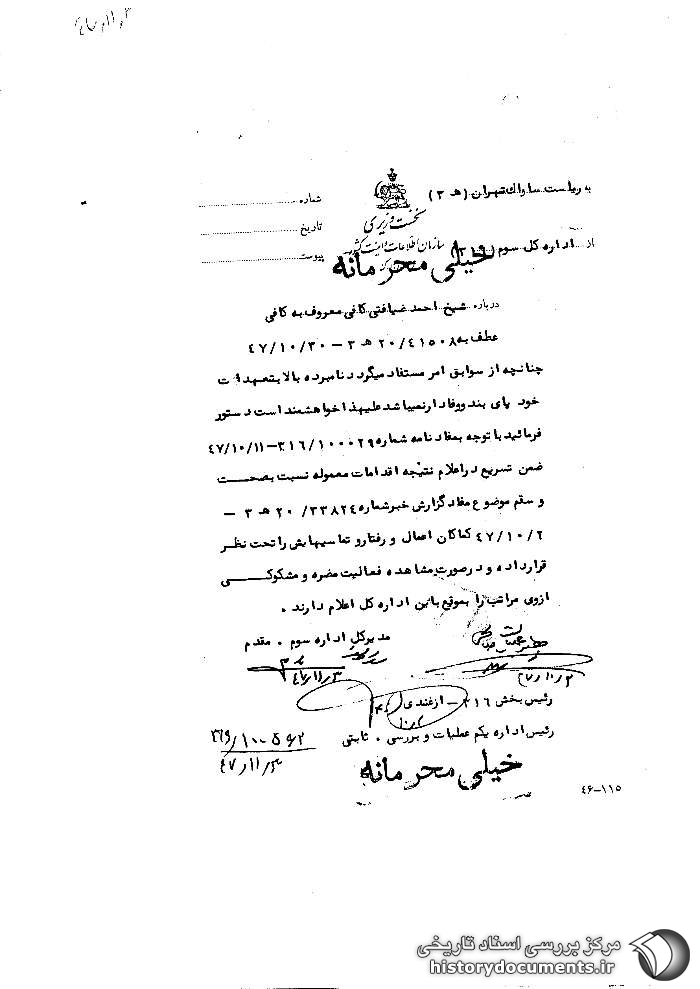 ۴۷/۱۱/۳
به ریاست ساواک تهران (ه‍ ۳)
شماره
نخست وزیری
تاریخ
سازمان اطلاعات و امنیت کشور
از اداره کل سوم (۳۱۶)
پیوست
خیلی محرمانه
درباره شیخ احمد ضیافتی کافی معروف به کافی
عطف به ۲۰/۴۱۵۰۸ ه‍ ۳ – ۴۷/۱۰/۳۰
چنانچه از سوابق امر مستفاد میگردد نامبرده بالا بتعهدات
خود پای بند ووفادار نمیباشد علیهذا خواهشمند است دستور
فرمائید با توجه بمفاد نامه شماره ۳۱۶/۱۰۰۰۲۹–۴۷/۱۰/۱۱
ضمن تسریع در اعلام نتیجه اقدامات معموله نسبت بصحت
و سقم موضوع مفاد گزارش خبر شماره ۲۰/۳۳۸۲۴ ه‍ ۳ –
۴۷/۱۰/۲ کماکان اعمال و رفتار و تماسهایش را تحت نظر
قرار داده و در صورت مشاهده فعالیت مضره و مشکوکی
ازوی مراتب را بموقع باین اداره کل اعلام دارند .
مدیرکل اداره سوم . مقدم
۴۷/۱۱/۳
رئیس بخش ۳۱۶ – ازغندی
رئیس اداره یکم عملیات و بررسی . ثابتی
۴۷/۱۱/۳
خیلی محرمانه
۴۶–۱۱۵
مرکز بررسی اسناد تاریخی
historydocuments.ir